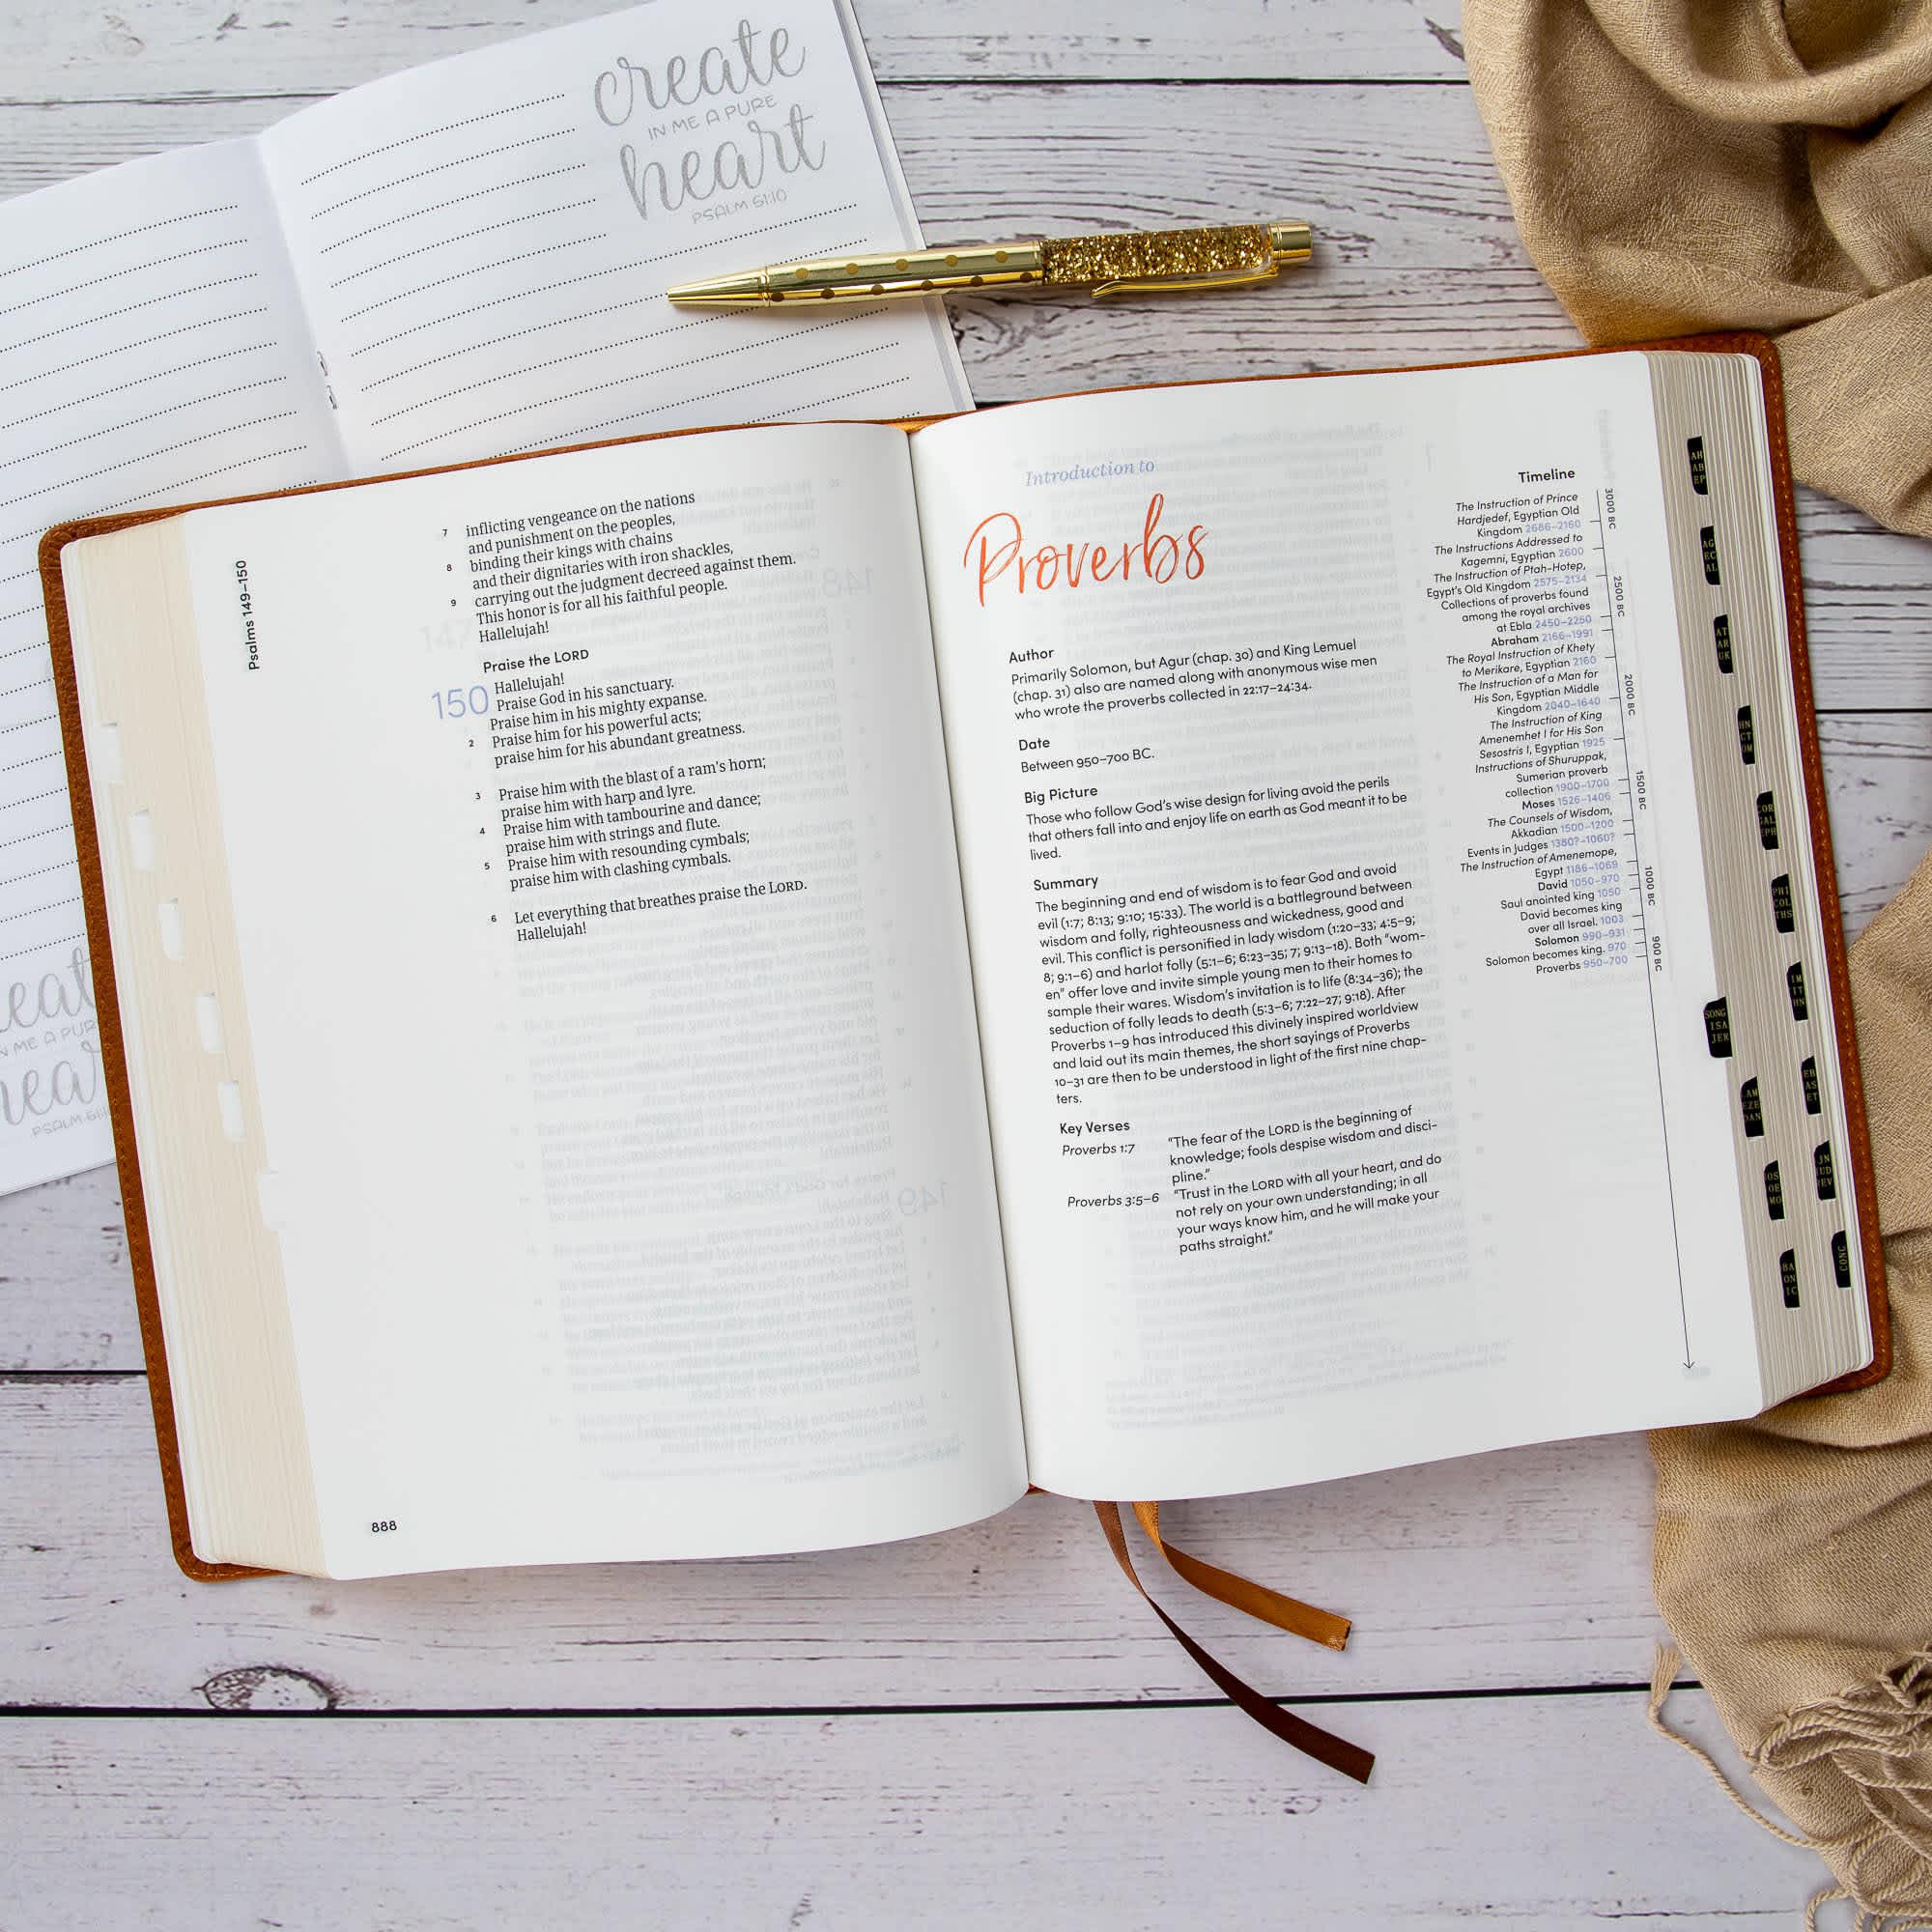 create
IN ME A PURE
heart
PSALM 51:10
PSALM
Psalms 149–150
7 inflicting vengeance on the nations
and punishment on the peoples,
8 binding their kings with chains
and their dignitaries with iron shackles,
9 carrying out the judgment decreed against them.
This honor is for all his faithful people.
Hallelujah!
Praise the LORD
150 Hallelujah!
Praise God in his sanctuary.
Praise him in his mighty expanse.
2 Praise him for his powerful acts;
praise him for his abundant greatness.
3 Praise him with the blast of a ram's horn;
praise him with harp and lyre.
4 Praise him with tambourine and dance;
praise him with strings and flute.
5 Praise him with resounding cymbals;
praise him with clashing cymbals.
6 Let everything that breathes praise the LORD.
Hallelujah!
888
Introduction to
Proverbs
Author
Primarily Solomon, but Agur (chap. 30) and King Lemuel
(chap. 31) also are named along with anonymous wise men
who wrote the proverbs collected in 22:17–24:34.
Date
Between 950–700 BC.
Big Picture
Those who follow God's wise design for living avoid the perils
that others fall into and enjoy life on earth as God meant it to be
lived.
Summary
The beginning and end of wisdom is to fear God and avoid
evil (1:7; 8:13; 9:10; 15:33). The world is a battleground between
wisdom and folly, righteousness and wickedness, good and
evil. This conflict is personified in lady wisdom (1:20–33; 4:5–9;
8; 9:1–6) and harlot folly (5:1–6; 6:23–35; 7; 9:13–18). Both "wom-
en" offer love and invite simple young men to their homes to
sample their wares. Wisdom's invitation is to life (8:34–36); the
seduction of folly leads to death (5:3–6; 7:22–27; 9:18). After
Proverbs 1–9 has introduced this divinely inspired worldview
and laid out its main themes, the short sayings of Proverbs
10–31 are then to be understood in light of the first nine chap-
ters.
Key Verses
Proverbs 1:7 "The fear of the LORD is the beginning of
knowledge; fools despise wisdom and disci-
pline."
Proverbs 3:5–6 "Trust in the LORD with all your heart, and do
not rely on your own understanding; in all
your ways know him, and he will make your
paths straight."
Timeline
The Instruction of Prince
Hardjedef, Egyptian Old
Kingdom 2686–2160
The Instructions Addressed to
Kagemni, Egyptian 2600
The Instruction of Ptah-Hotep,
Egypt's Old Kingdom 2575–2134
Collections of proverbs found
among the royal archives
at Ebla 2450–2250
Abraham 2166–1991
The Royal Instruction of Khety
to Merikare, Egyptian 2160
The Instruction of a Man for
His Son, Egyptian Middle
Kingdom 2040–1640
The Instruction of King
Amenemhet I for His Son
Sesostris I, Egyptian 1925
Instructions of Shuruppak,
Sumerian proverb
collection 1900–1700
Moses 1526–1406
The Counsels of Wisdom,
Akkadian 1500–1200
Events in Judges 1380?–1060?
The Instruction of Amenemope,
Egypt 1186–1069
David 1050–970
Saul anointed king 1050
David becomes king
over all Israel. 1003
Solomon 990–931
Solomon becomes king. 970
Proverbs 950–700
3000 BC
2500 BC
2000 BC
1500 BC
1000 BC
900 BC
SONG
ISA
JER
PHI
COL
THS
CONC